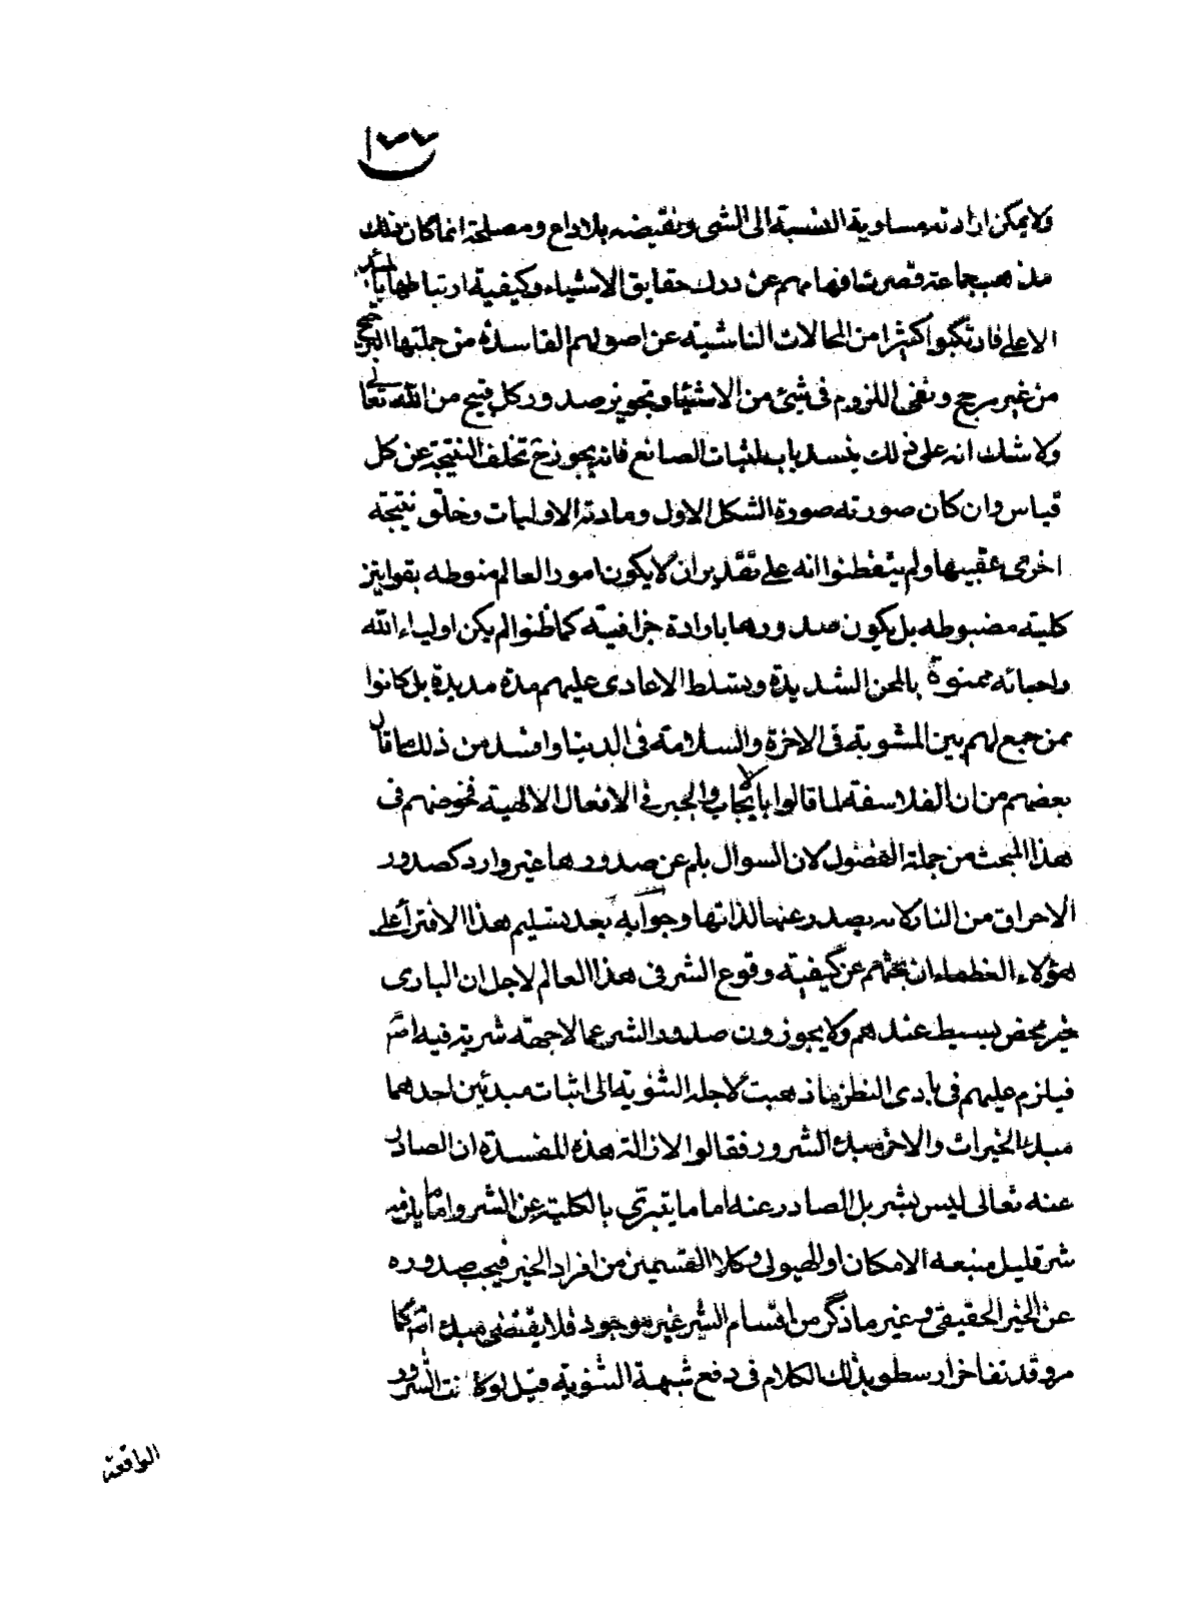 ١٧٧
ولا يمكن ارادته مساوية النسبة الى الشى ونقيضه بلا داع ومصلحة انما كان ذلك
مذهب جماعة قصرت افهامهم عن درك حقايق الاشياء وكيفية ارتباطها بالمبدء
الاعلى فارتكبوا كثيرا من المحالات الناشية عن اصولهم الفاسدة من جملتها الترجيح
من غير مرجح ونفى اللزوم فى شئ من الاشياء وتجويز صدور كل قبيح من الله تعالى
ولا شك انه على ذلك ينسد باب اثبات الصانع فانه يجوز ح تخلف النتيجة عن كل
قياس وان كان صورته صورة الشكل الاول ومادته الاوليات وخلق نتيجة
اخرى عقيبها ولم يتفطنوا انه على تقدير ان لا يكون امور العالم منوطه بقوانين
كلية مضبوطه بل يكون صدورها بارادة جزافية كما ظنوا لم يكن اولياء الله
واحبائه ممنوة بالمحن الشديدة وبتسلط الاعادى عليهم مدة مديدة بل كانوا
ممن جمع لهم بين المثوبة فى الاخرة والسلامة فى الدنيا وافسد من ذلك ما قال
بعضهم من ان الفلاسفة لما قالوا بالايجاب والجبر فى الافعال الالهية فخوضهم فى
هذا المبحث من جملة الفضول لان السوال بلم عن صدورها غير وارد كصدور
الاحراق من النار لانه يصدر عنها لذاتها وجوابه بعد تسليم هذا الافتراء على
هؤلاء العظماء ان بحثهم عن كيفية وقوع الشر فى هذا العالم لاجل ان البارى
خير محض بسيط عندهم ولا يجوزون صدور الشر عما لا جهة شرية فيه اصلا
فيلزم عليهم فى بادى النظر ما ذهبت لاجله الثنوية الى اثبات مبدئين احدهما
مبدء الخيرات والاخر مبدء الشرور فقالوا لازالة هذه المفسدة ان الصادر
عنه تعالى ليس بشر بل الصادر عنه اما ما يتبرى بالكلية عن الشر واما ما يلزمه
شر قليل منبعه الامكان او الهيولى وكلا القسمين من افراد الخير فيجب صدوره
عن الخير الحقيقى وغير ما ذكر من اقسام الشر غير موجود فلا يقتضى مبدء اصلا كما
مر وقد تفاخر ارسطو بذلك الكلام فى دفع شبهة الثنوية قيل لو كانت الشرور
الواقعة